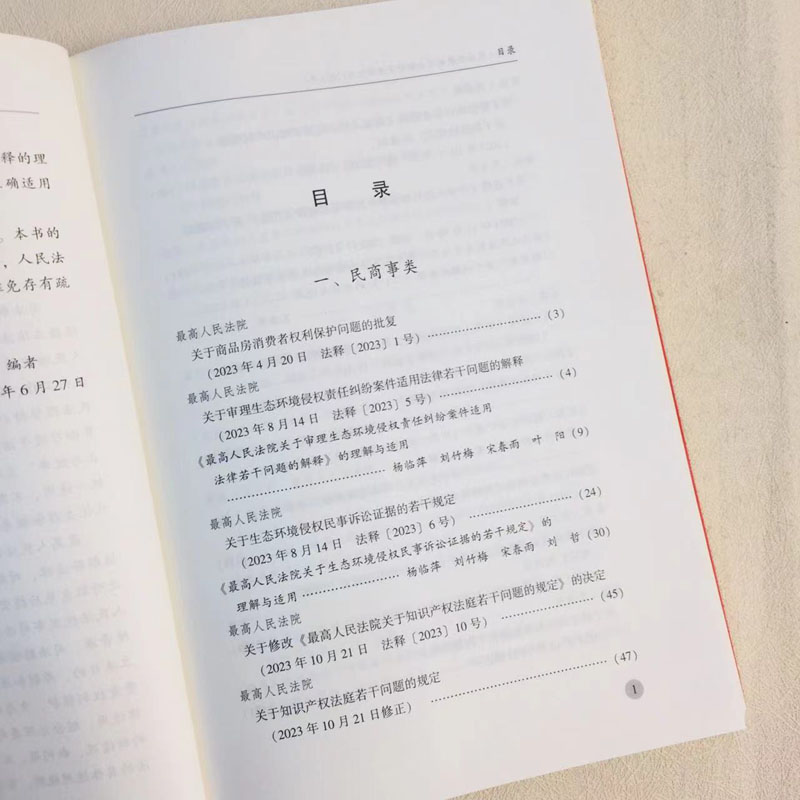 释的理
确适用
。本书的
，人民法
免存有疏
编者
年 6 月 27 日
目录
目 录
一、民商事类
最高人民法院
关于商品房消费者权利保护问题的批复
（2023 年 4 月 20 日 法释〔2023〕1 号）……………………（3）
最高人民法院
关于审理生态环境侵权责任纠纷案件适用法律若干问题的解释
（2023 年 8 月 14 日 法释〔2023〕5 号）……………………（4）
《最高人民法院关于审理生态环境侵权责任纠纷案件适用
法律若干问题的解释》的理解与适用
……………………… 杨临萍 刘竹梅 宋春雨 叶 阳（9）
最高人民法院
关于生态环境侵权民事诉讼证据的若干规定
（2023 年 8 月 14 日 法释〔2023〕6 号）……………………（24）
《最高人民法院关于生态环境侵权民事诉讼证据的若干规定》的
理解与适用 …………… 杨临萍 刘竹梅 宋春雨 刘 哲（30）
最高人民法院
关于修改《最高人民法院关于知识产权法庭若干问题的规定》的决定
（2023 年 10 月 21 日 法释〔2023〕10 号）……………………（45）
最高人民法院
关于知识产权法庭若干问题的规定
（2023 年 10 月 21 日修正）……………………（47）
1